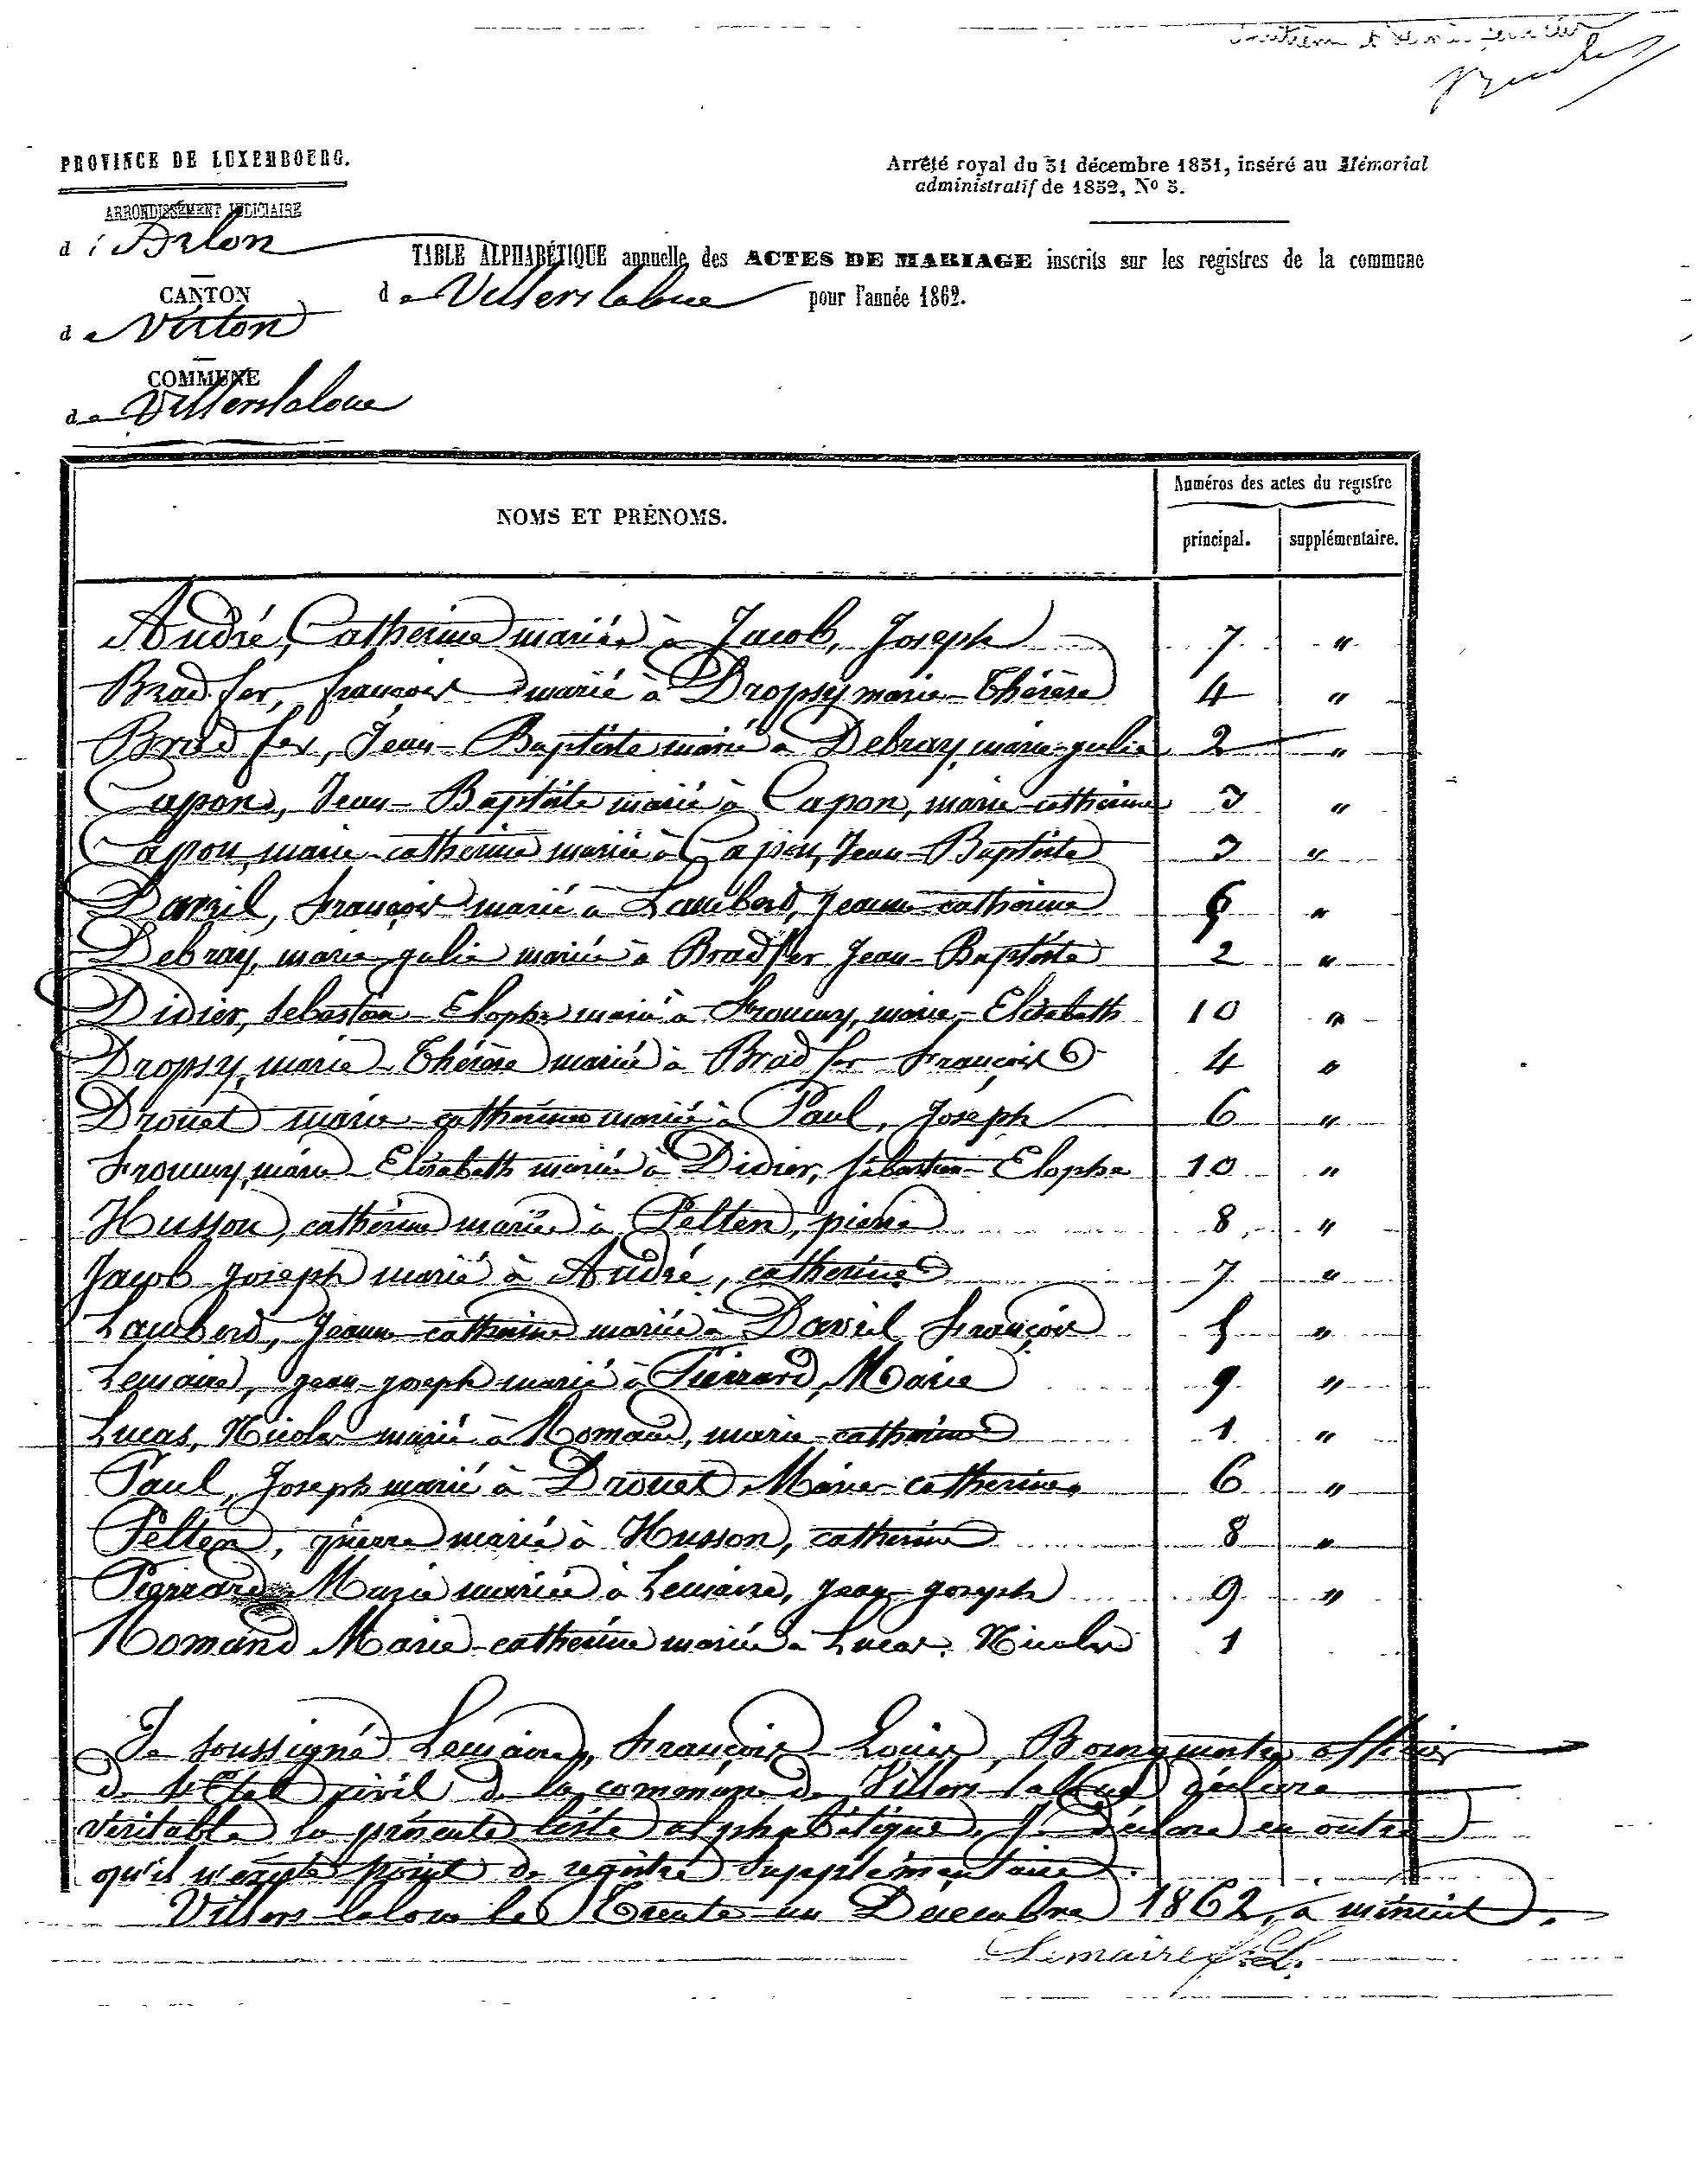 PROVINCE DE LUXEMBOURG.
ARRONDISSEMENT JUDICIAIRE
d'Arlon
CANTON
de Virton
COMMUNE
de Villerslaloue
Arrêté royal du 31 décembre 1831, inséré au Mémorial
administratif de 1832, No 3.
TABLE ALPHABÉTIQUE annuelle des ACTES DE MARIAGE inscrits sur les registres de la commune
de Villerslaloue pour l'année 1862.
NOMS ET PRÉNOMS.
Numéros des actes du registre
principal. supplémentaire.
André, Catherine mariée à Jacob, Joseph 7 "
Bradfer, françois marié à Dropsy marie-Thérèse 4 "
Bradfer, Jean-Baptiste marié à Debray, marie-julie 2 "
Capon, Jean-Baptiste marié à Capon, marie-catherine 3 "
Capon, marie-catherine mariée à Capon, Jean-Baptiste 3 "
Daviil, françois marié à Lambord, Jeanne-catherine 5 "
Debray, marie-julie mariée à Bradfer Jean-Baptiste 2 "
Didier, Sebastien-Elophe marié à Fromuy, marie-Elisabeth 10 "
Dropsy, marie-Thérèse mariée à Bradfer François 4 "
Drouet marie-catherine mariée à Paul, Joseph 6 "
Fromuy, marie-Elisabeth mariée à Didier, sébastien-Elophe 10 "
Husson, catherine mariée à Pelten, pierre 8 "
Jacob Joseph marié à André, catherine 7 "
Lambord, Jeanne-catherine mariée à Daviil François 5 "
Lemaire, jean-joseph marié à Pierrard, Marie 9 "
Lucas, Nicolas marié à Romand, marie-catherine 1 "
Paul, Joseph marié à Drouet Marie-catherine 6 "
Pelten, pierre marié à Husson, catherine 8 "
Pierrard Marie mariée à Lemaire, jean-joseph 9 "
Romand Marie-catherine mariée à Lucas, Nicolas 1
Je soussigné Lemaire, François-Louis, Bourgmestre officier
de l'Etat civil de la commune de Villers-laloue déclare
véritable la présente liste alphabétique. Je déclare en outre
qu'il n'existe point de registre supplémentaire.
Villers-laloue le Trente-un Décembre 1862, à minuit.
Lemaire f.L.